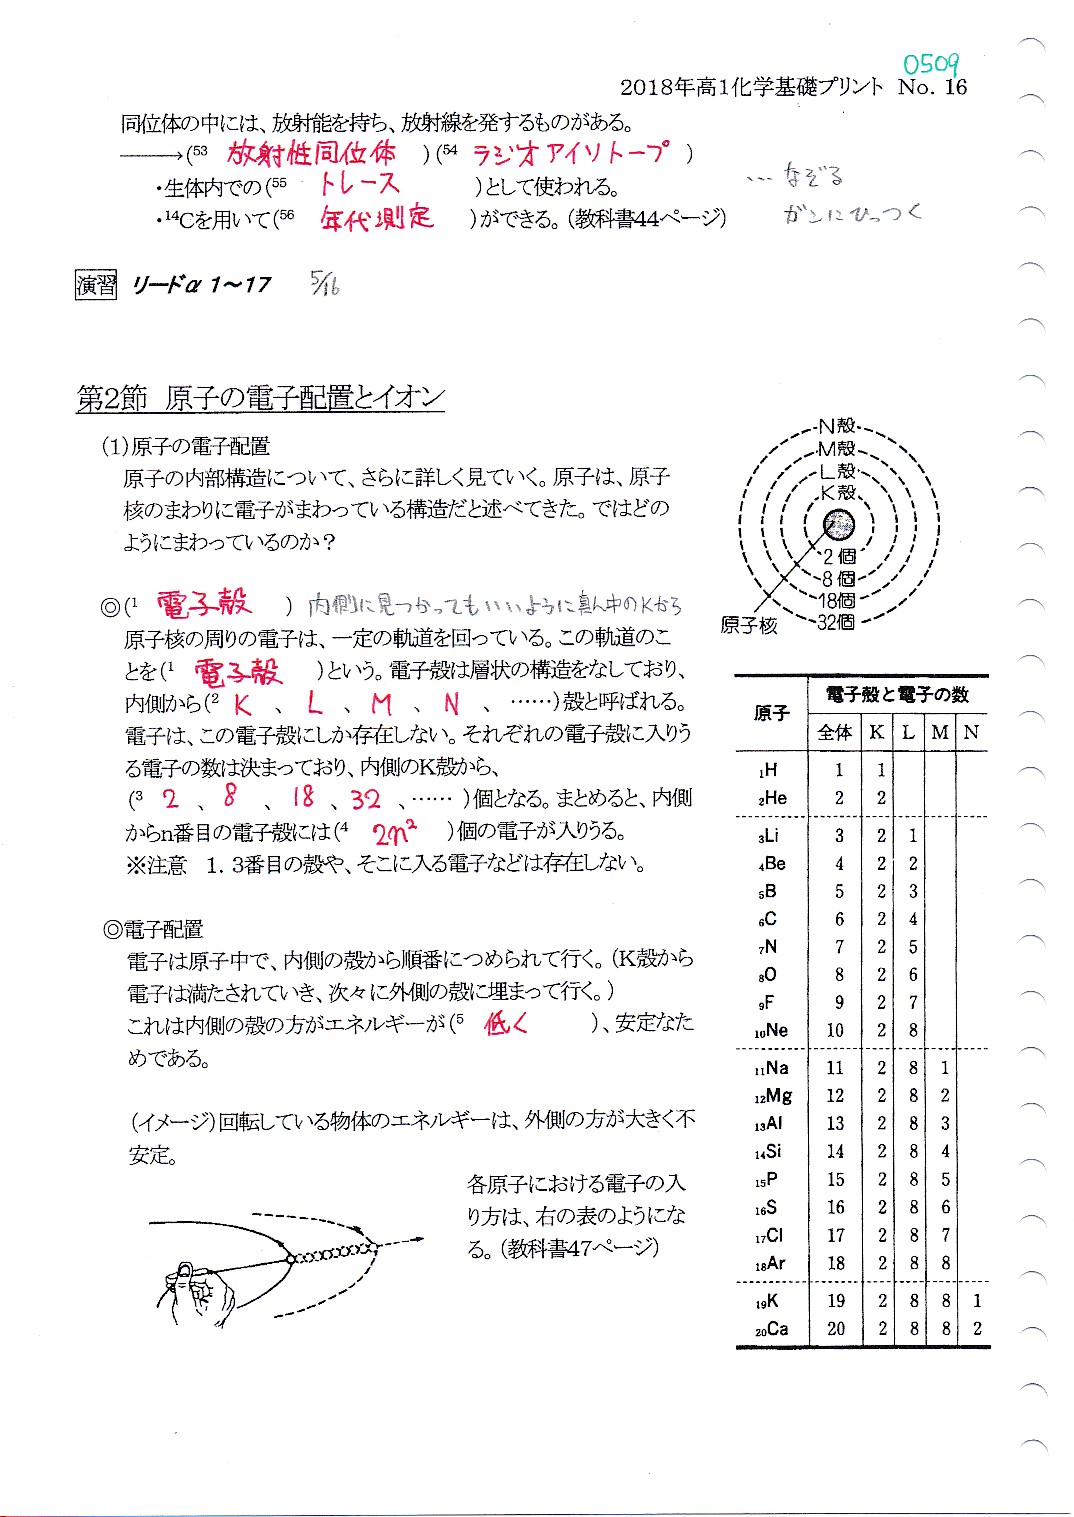 0509
2018年高1化学基礎プリント No. 16
同位体の中には、放射能を持ち、放射線を発するものがある。
――→(53 放射性同位体 )(54 ラジオアイソトープ )
・生体内での(55 トレース )として使われる。 …なぞる
・14Cを用いて(56 年代測定 )ができる。(教科書44ページ) ガンにひっつく
演習 リードα 1～17 5/16
第2節 原子の電子配置とイオン
(1)原子の電子配置
原子の内部構造について、さらに詳しく見ていく。原子は、原子
核のまわりに電子がまわっている構造だと述べてきた。ではどの
ようにまわっているのか？
◎(1 電子殻 ) 内側に見つかってもいいように真ん中のKから
原子核の周りの電子は、一定の軌道を回っている。この軌道のこ
とを(1 電子殻 )という。電子殻は層状の構造をなしており、
内側から(2 K 、 L 、 M 、 N 、 ……)殻と呼ばれる。
電子は、この電子殻にしか存在しない。それぞれの電子殻に入りう
る電子の数は決まっており、内側のK殻から、
(3 2 、 8 、 18 、 32 、…… )個となる。まとめると、内側
からn番目の電子殻には(4 2n² )個の電子が入りうる。
※注意 1．3番目の殻や、そこに入る電子などは存在しない。
◎電子配置
電子は原子中で、内側の殻から順番につめられて行く。(K殻から
電子は満たされていき、次々に外側の殻に埋まって行く。)
これは内側の殻の方がエネルギーが(5 低く )、安定なた
めである。
(イメージ)回転している物体のエネルギーは、外側の方が大きく不
安定。
各原子における電子の入
り方は、右の表のようにな
る。(教科書47ページ)
N殻
M殻
L殻
K殻
2個
8個
18個
32個
原子核
原子 電子殻と電子の数
全体 K L M N
1H 1 1
2He 2 2
3Li 3 2 1
4Be 4 2 2
5B 5 2 3
6C 6 2 4
7N 7 2 5
8O 8 2 6
9F 9 2 7
10Ne 10 2 8
11Na 11 2 8 1
12Mg 12 2 8 2
13Al 13 2 8 3
14Si 14 2 8 4
15P 15 2 8 5
16S 16 2 8 6
17Cl 17 2 8 7
18Ar 18 2 8 8
19K 19 2 8 8 1
20Ca 20 2 8 8 2